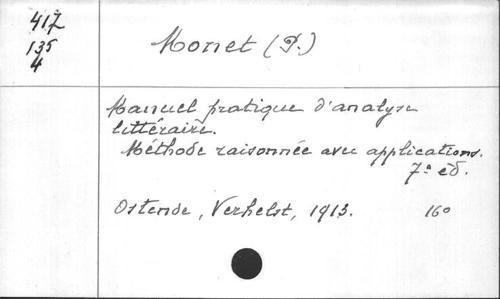 417
135
4
Monet (P.)
Manuel pratique d'analyse
littéraire.
Méthode raisonnée avec applications.
7e éd.
Ostende, Verhelst, 1913. 16o